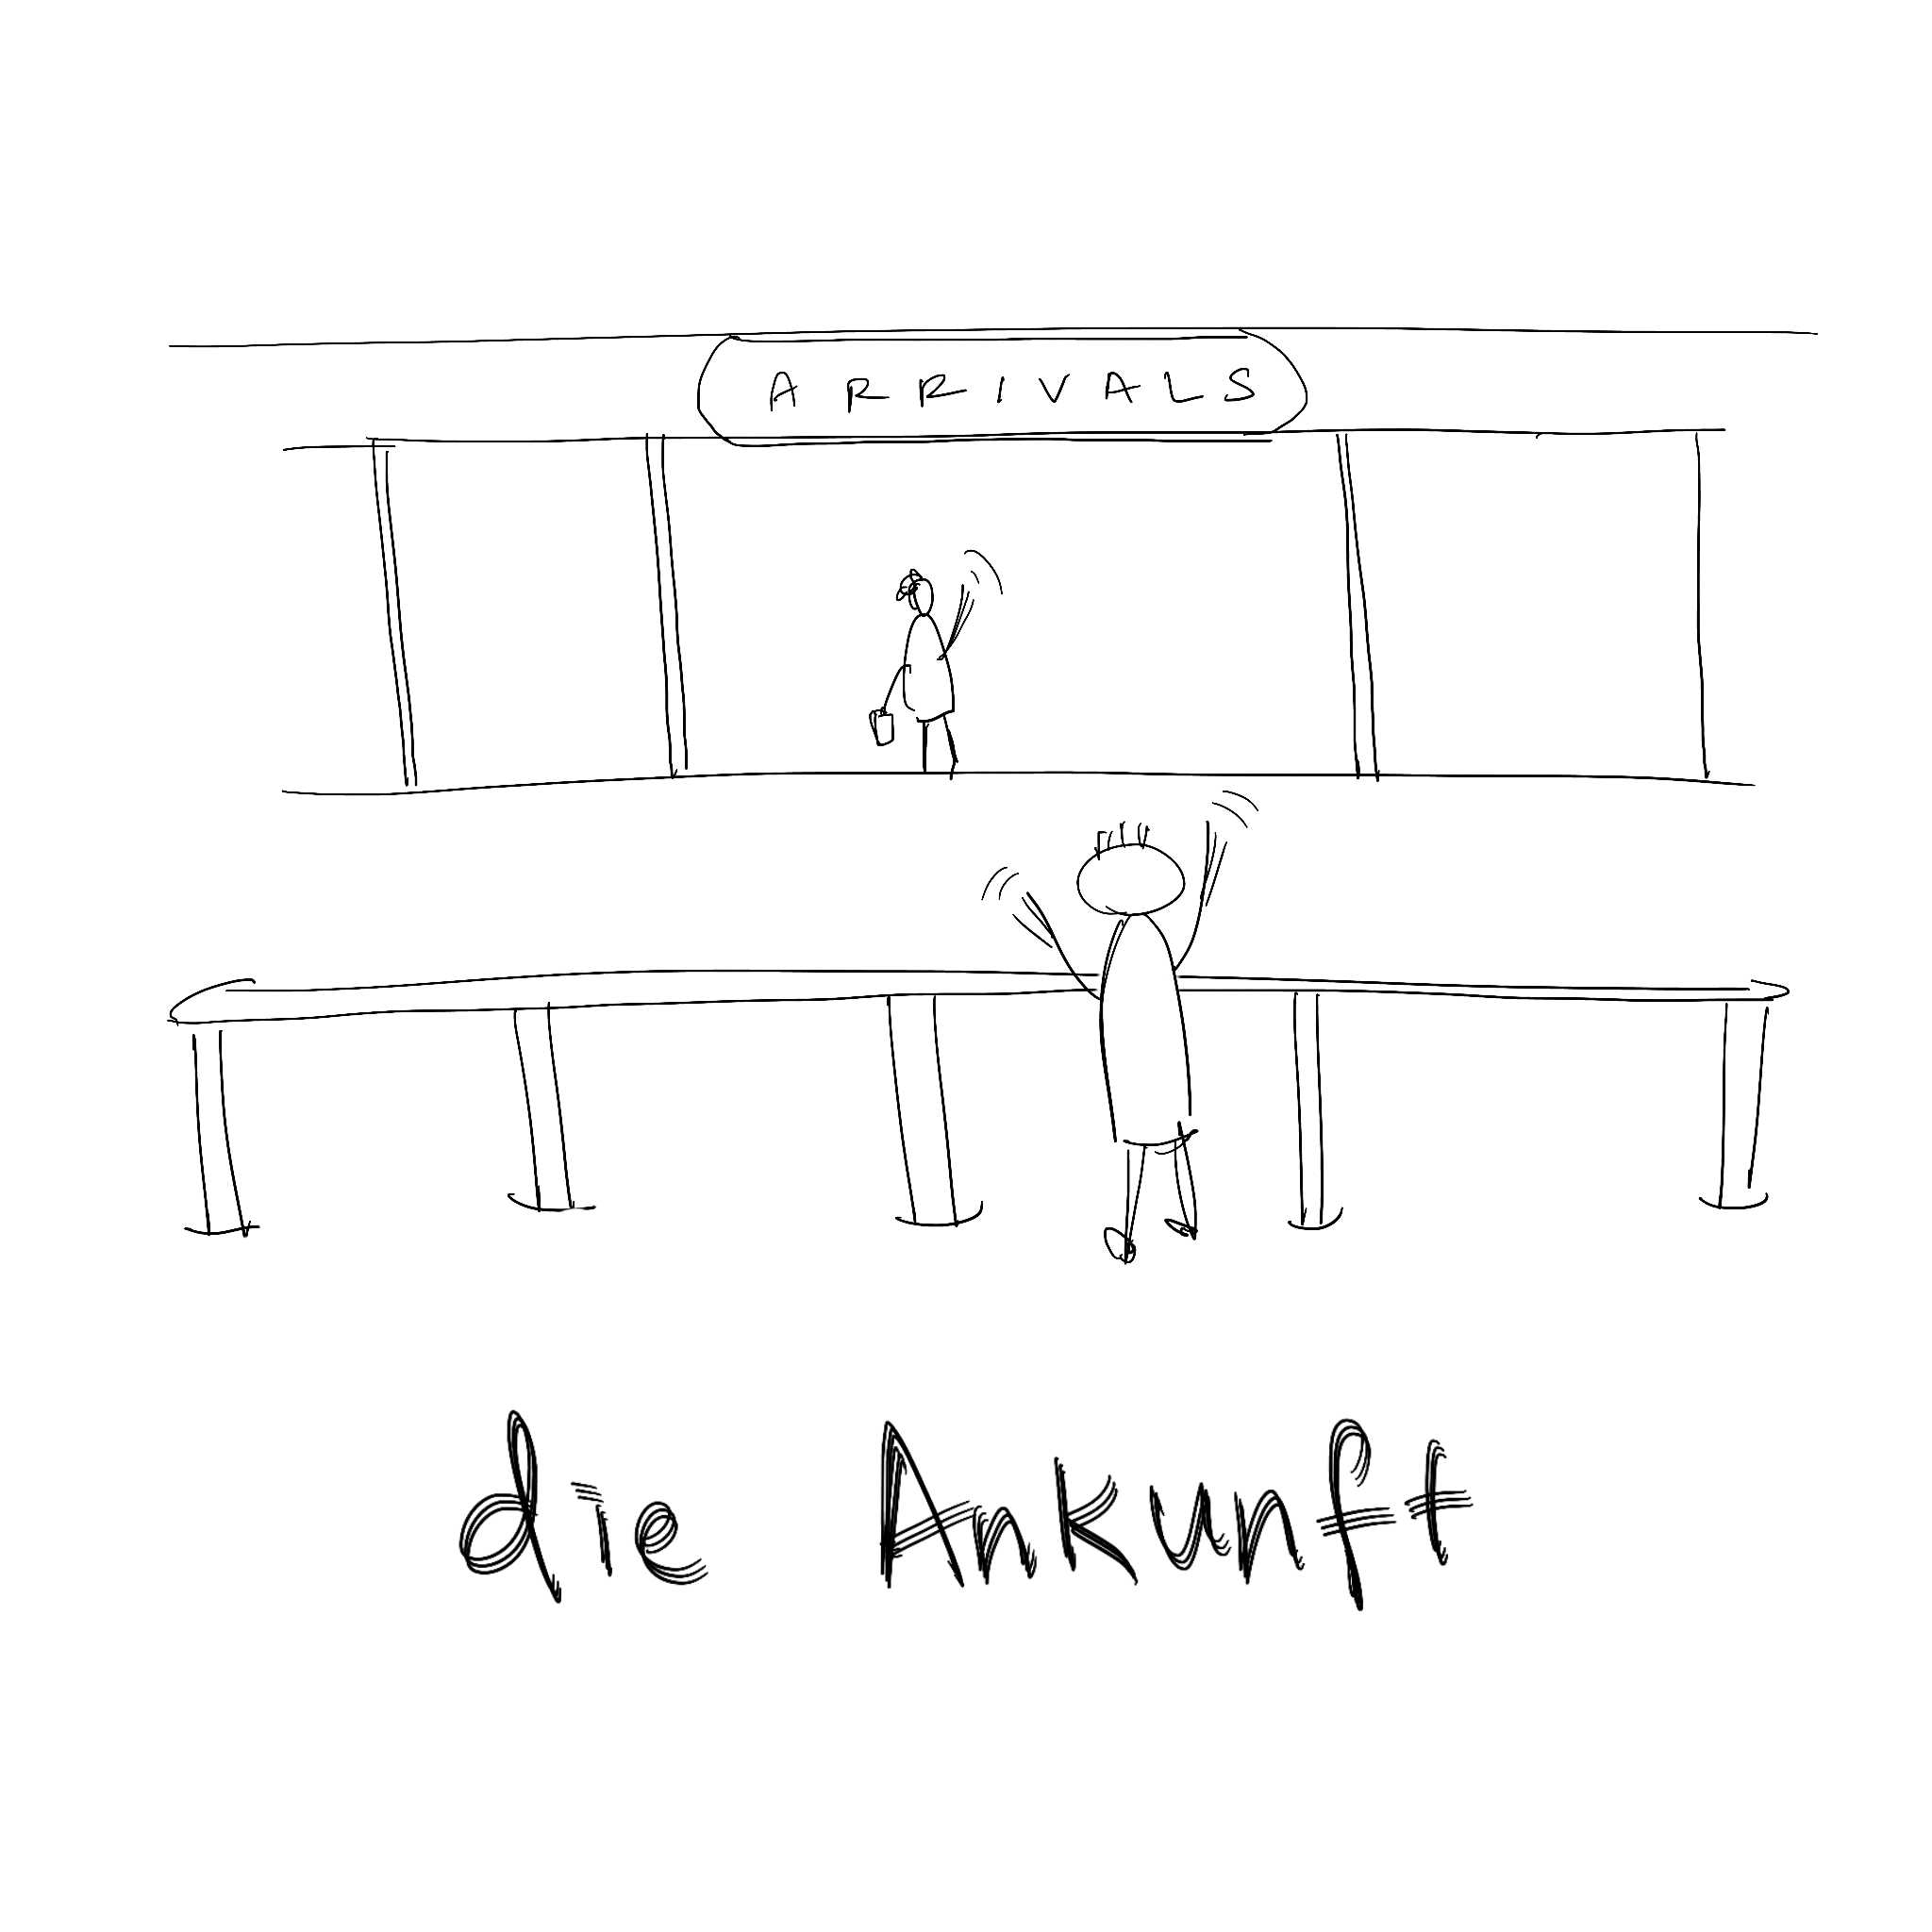 ARRIVALS
die Ankunft